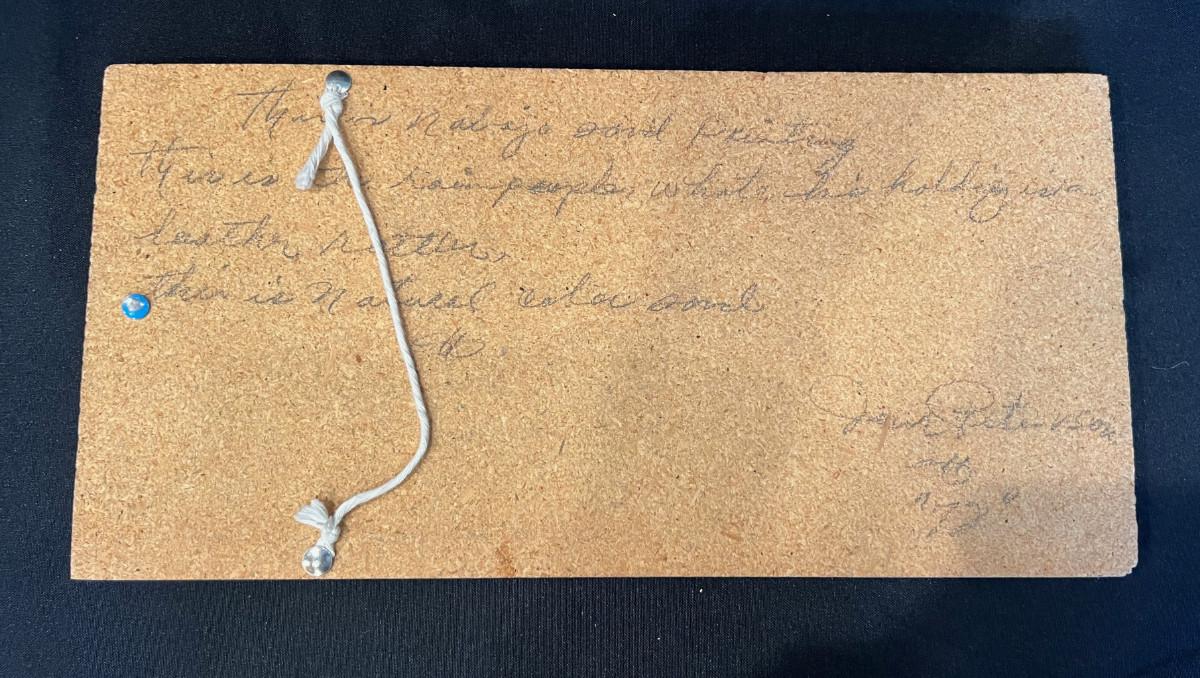 This is Nabajo sand Painting
This is the rain people, what his holding is a
leather rattler,
this is Natural color sand
Peterson
"77"